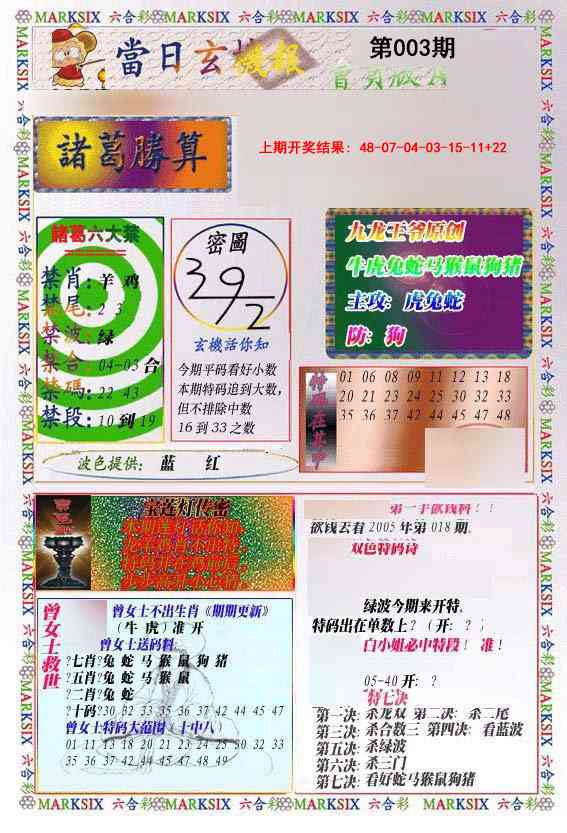 MARKSIX 六合彩 MARKSIX 六合彩 MARKSIX 六合彩 MARKSIX 六合彩 MARKSIX 六合彩
當日玄機報
第003期
諸葛勝算
上期开奖结果: 48-07-04-03-15-11+22
諸葛六大禁
禁肖: 羊 鸡
禁尾: 2 3
禁波: 绿
禁合: 04-03 合
禁碼: 22 43
禁段: 10 到 19
密圖
392
玄機活你知
今期平码看好小数
本期特码追到大数,
但不排除中数
16 到 33 之数
九龙王爷原创
牛虎兔蛇马猴鼠狗猪
主攻: 虎兔蛇
防: 狗
特码在其中
01 06 08 09 11 12 13 18
20 21 23 24 25 30 32 33
35 36 37 42 44 45 47 48
波色提供: 蓝 红
宝莲灯传密
曾女士救世
曾女士不出生肖《期期更新》
(牛 虎) 准 开
曾女士送码料
?七肖?兔 蛇 马 猴 鼠 狗 猪
?五肖?兔 蛇 马 猴 鼠
?二肖?兔 蛇
?十码?30 32 33 35 36 37 42 44 45 47
曾女士特码大范围 (十中八)
01 11 13 18 20 21 23 24 25 30 32 33
35 36 37 42 44 45 47 48 49
第一手欲钱料!!
欲钱去看 2005 年第 018 期.
双色特码诗
绿波今期来开特.
特码出在单数上? (开: ? )
白小姐必中特段! 准!
05-40 开: ?
特七决
第一决: 杀龙双 第二决: 杀二尾
第三决: 杀合数三 第四决: 看蓝波
第五决: 杀绿波
第六决: 杀三门
第七决: 看好蛇马猴鼠狗猪
MARKSIX 六合彩 MARKSIX 六合彩 MARKSIX 六合彩 MARKSIX 六合彩 MARKSIX 六合彩